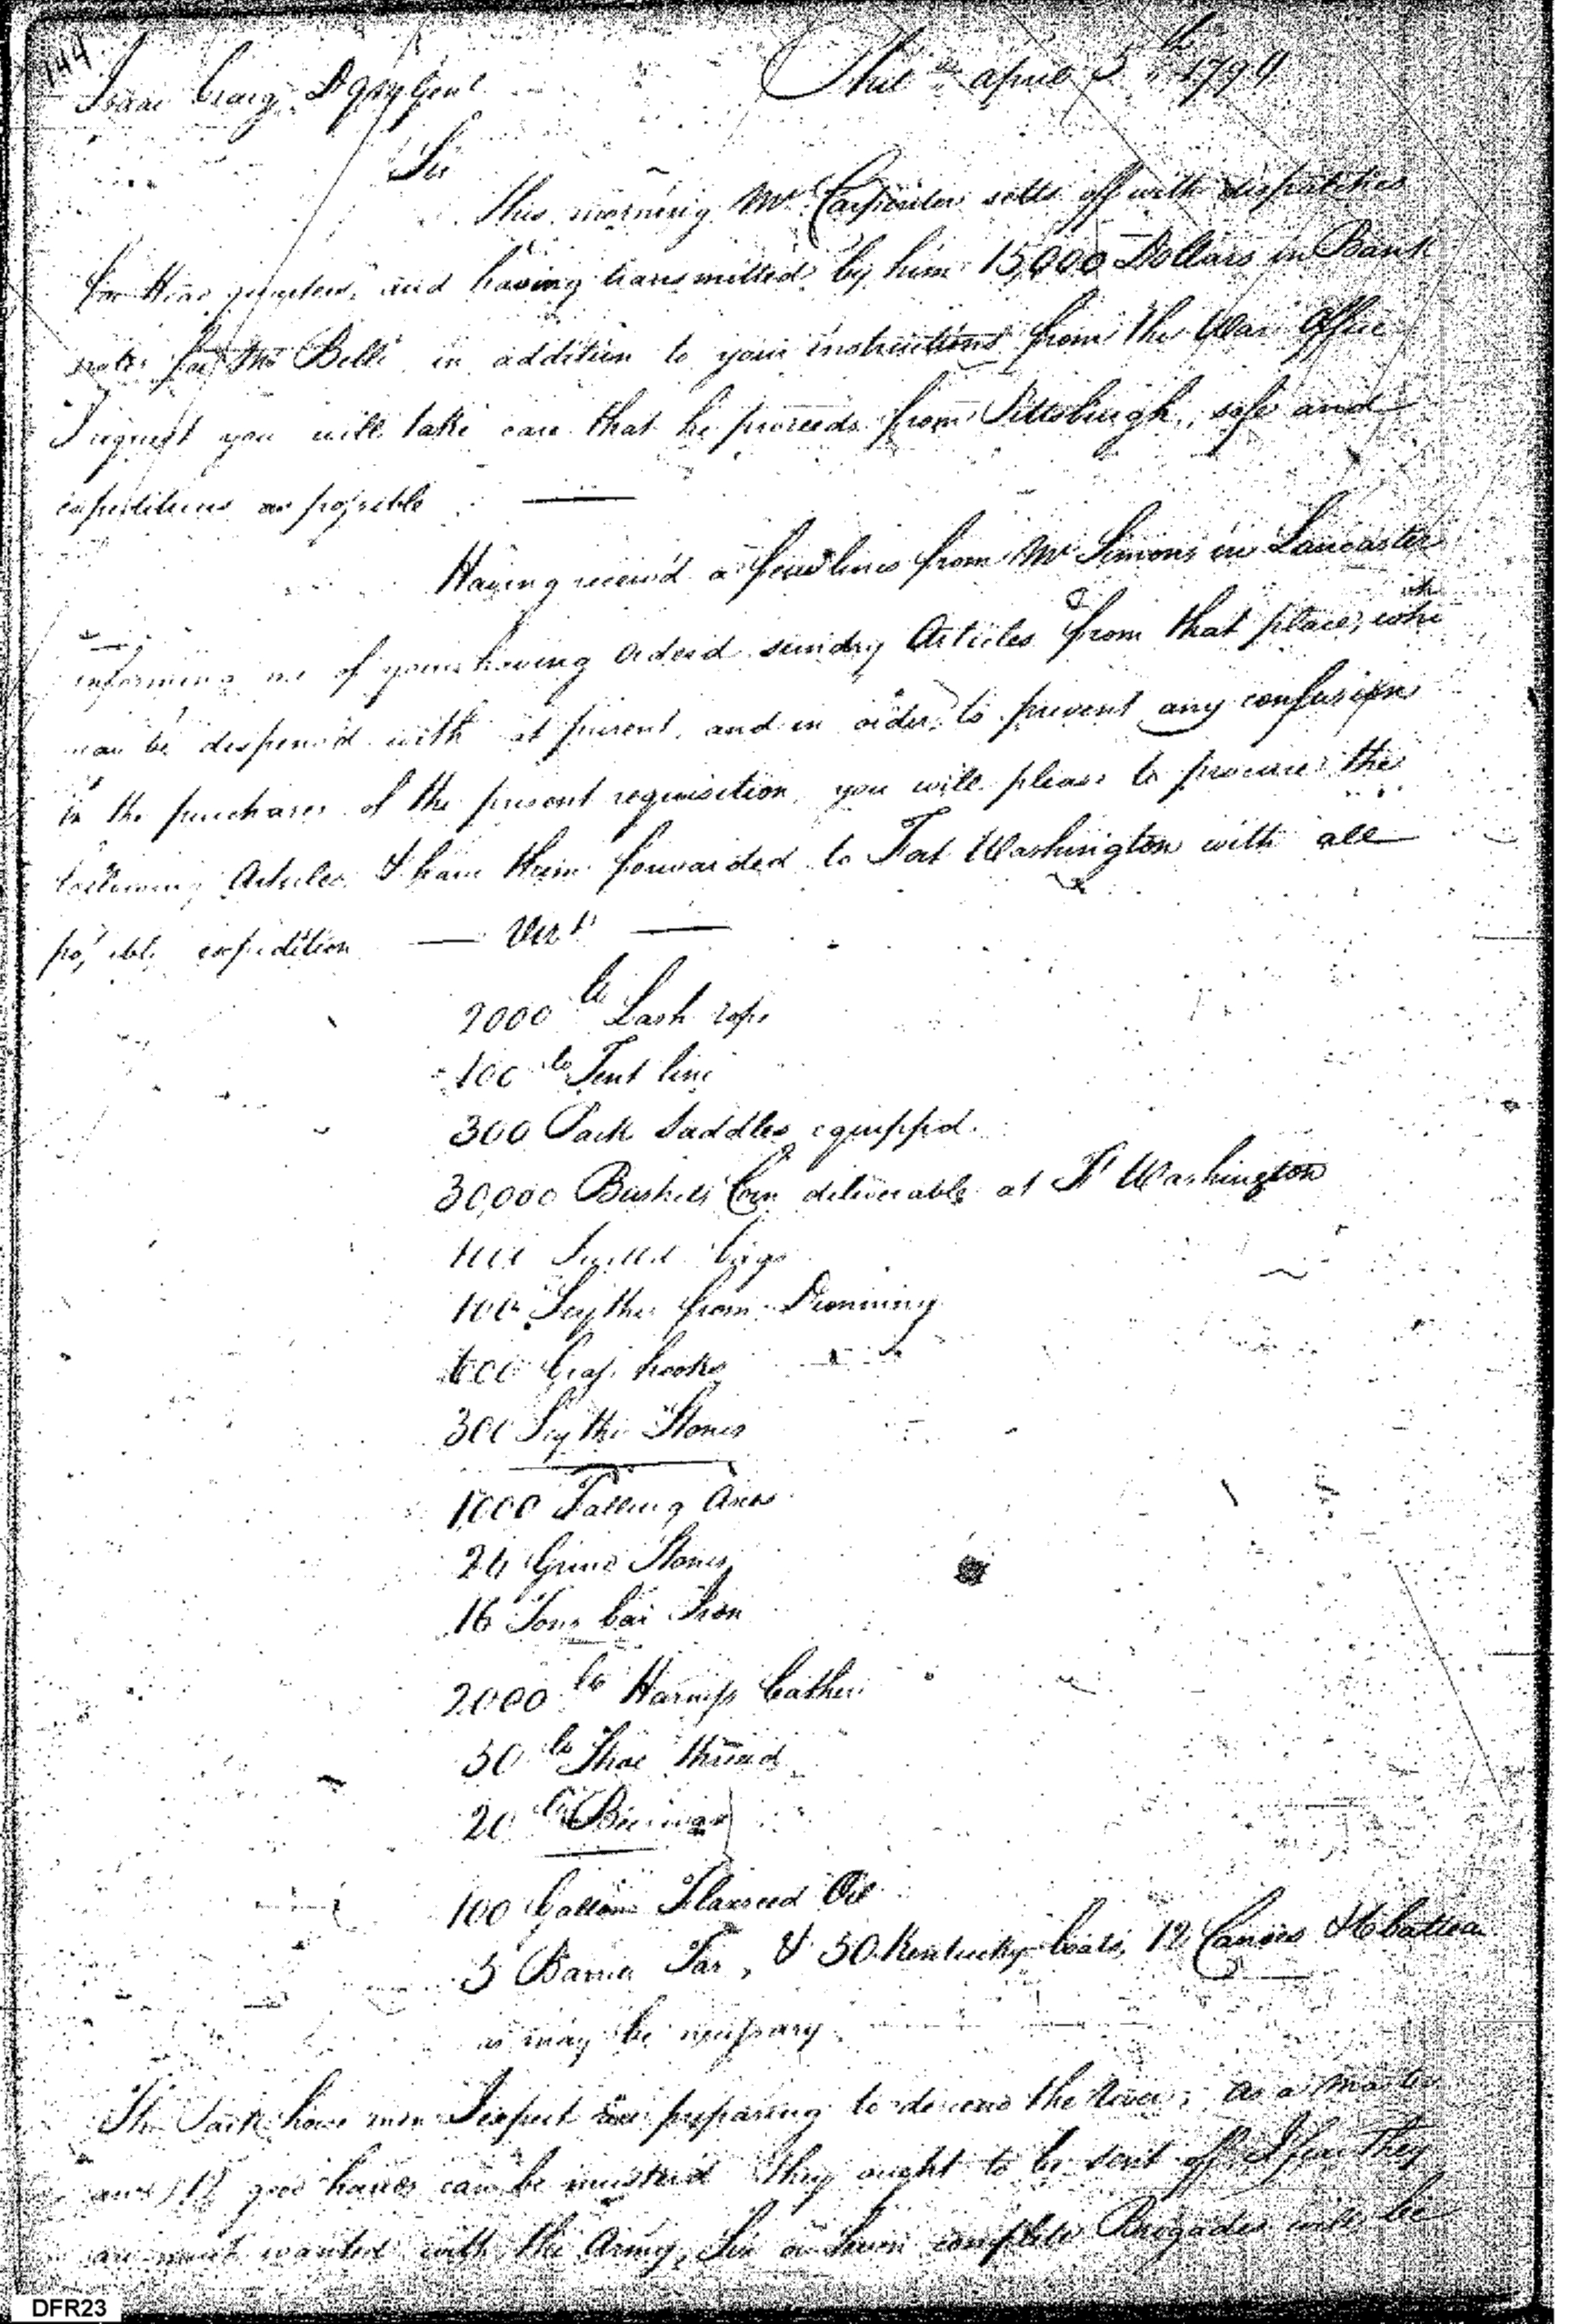 144
Isaac Craig DQM Genl
Phila april 5th 1794
Sir
This morning Mr Carpenter setts off with dispatches
for Head quarters, and having transmitted by him 15,000 Dollars in Bank
notes for Mr Belli in addition to your instructions from the War Office
I request you will take care that he proceeds from Pittsburgh, safe and
expeditious as possible
Having receiv'd a few lines from Mr Simons in Lancaster
informing me of your having orderd sundry Articles from that place, which
can be despens'd with at present, and in order to prevent any confusion
in the purchases of the present requisition, you will please to procure the
following Articles & have them forwarded to Fort Washington with all
possible expedition — Vizt —
2000 lb Lash rope
100 lb Tent line
300 Pack Saddles equippd.
30,000 Bushels Corn deliverable at Ft Washington
bags
100 Scythes from
Grass hooks
300 Scythe Stones
1,000 Falling Axes
24 Grind Stones
16 Tons bar Iron
2000 lb Harness Leather
50 lb Shoe thread
20 lb Beeswax
100 Gallons Flaxseed Oil
5 Barrels Tar, & 50 Kentucky boats, 12 Canoes & 6 batteau
as may be necessary
The Pack horse men I expect are preparing to descend the River, as a master
and 12 good hands can be musterd they ought to be sent off I fear They
are much wanted with the Army, Six or Seven complete Brigades will be
DFR23